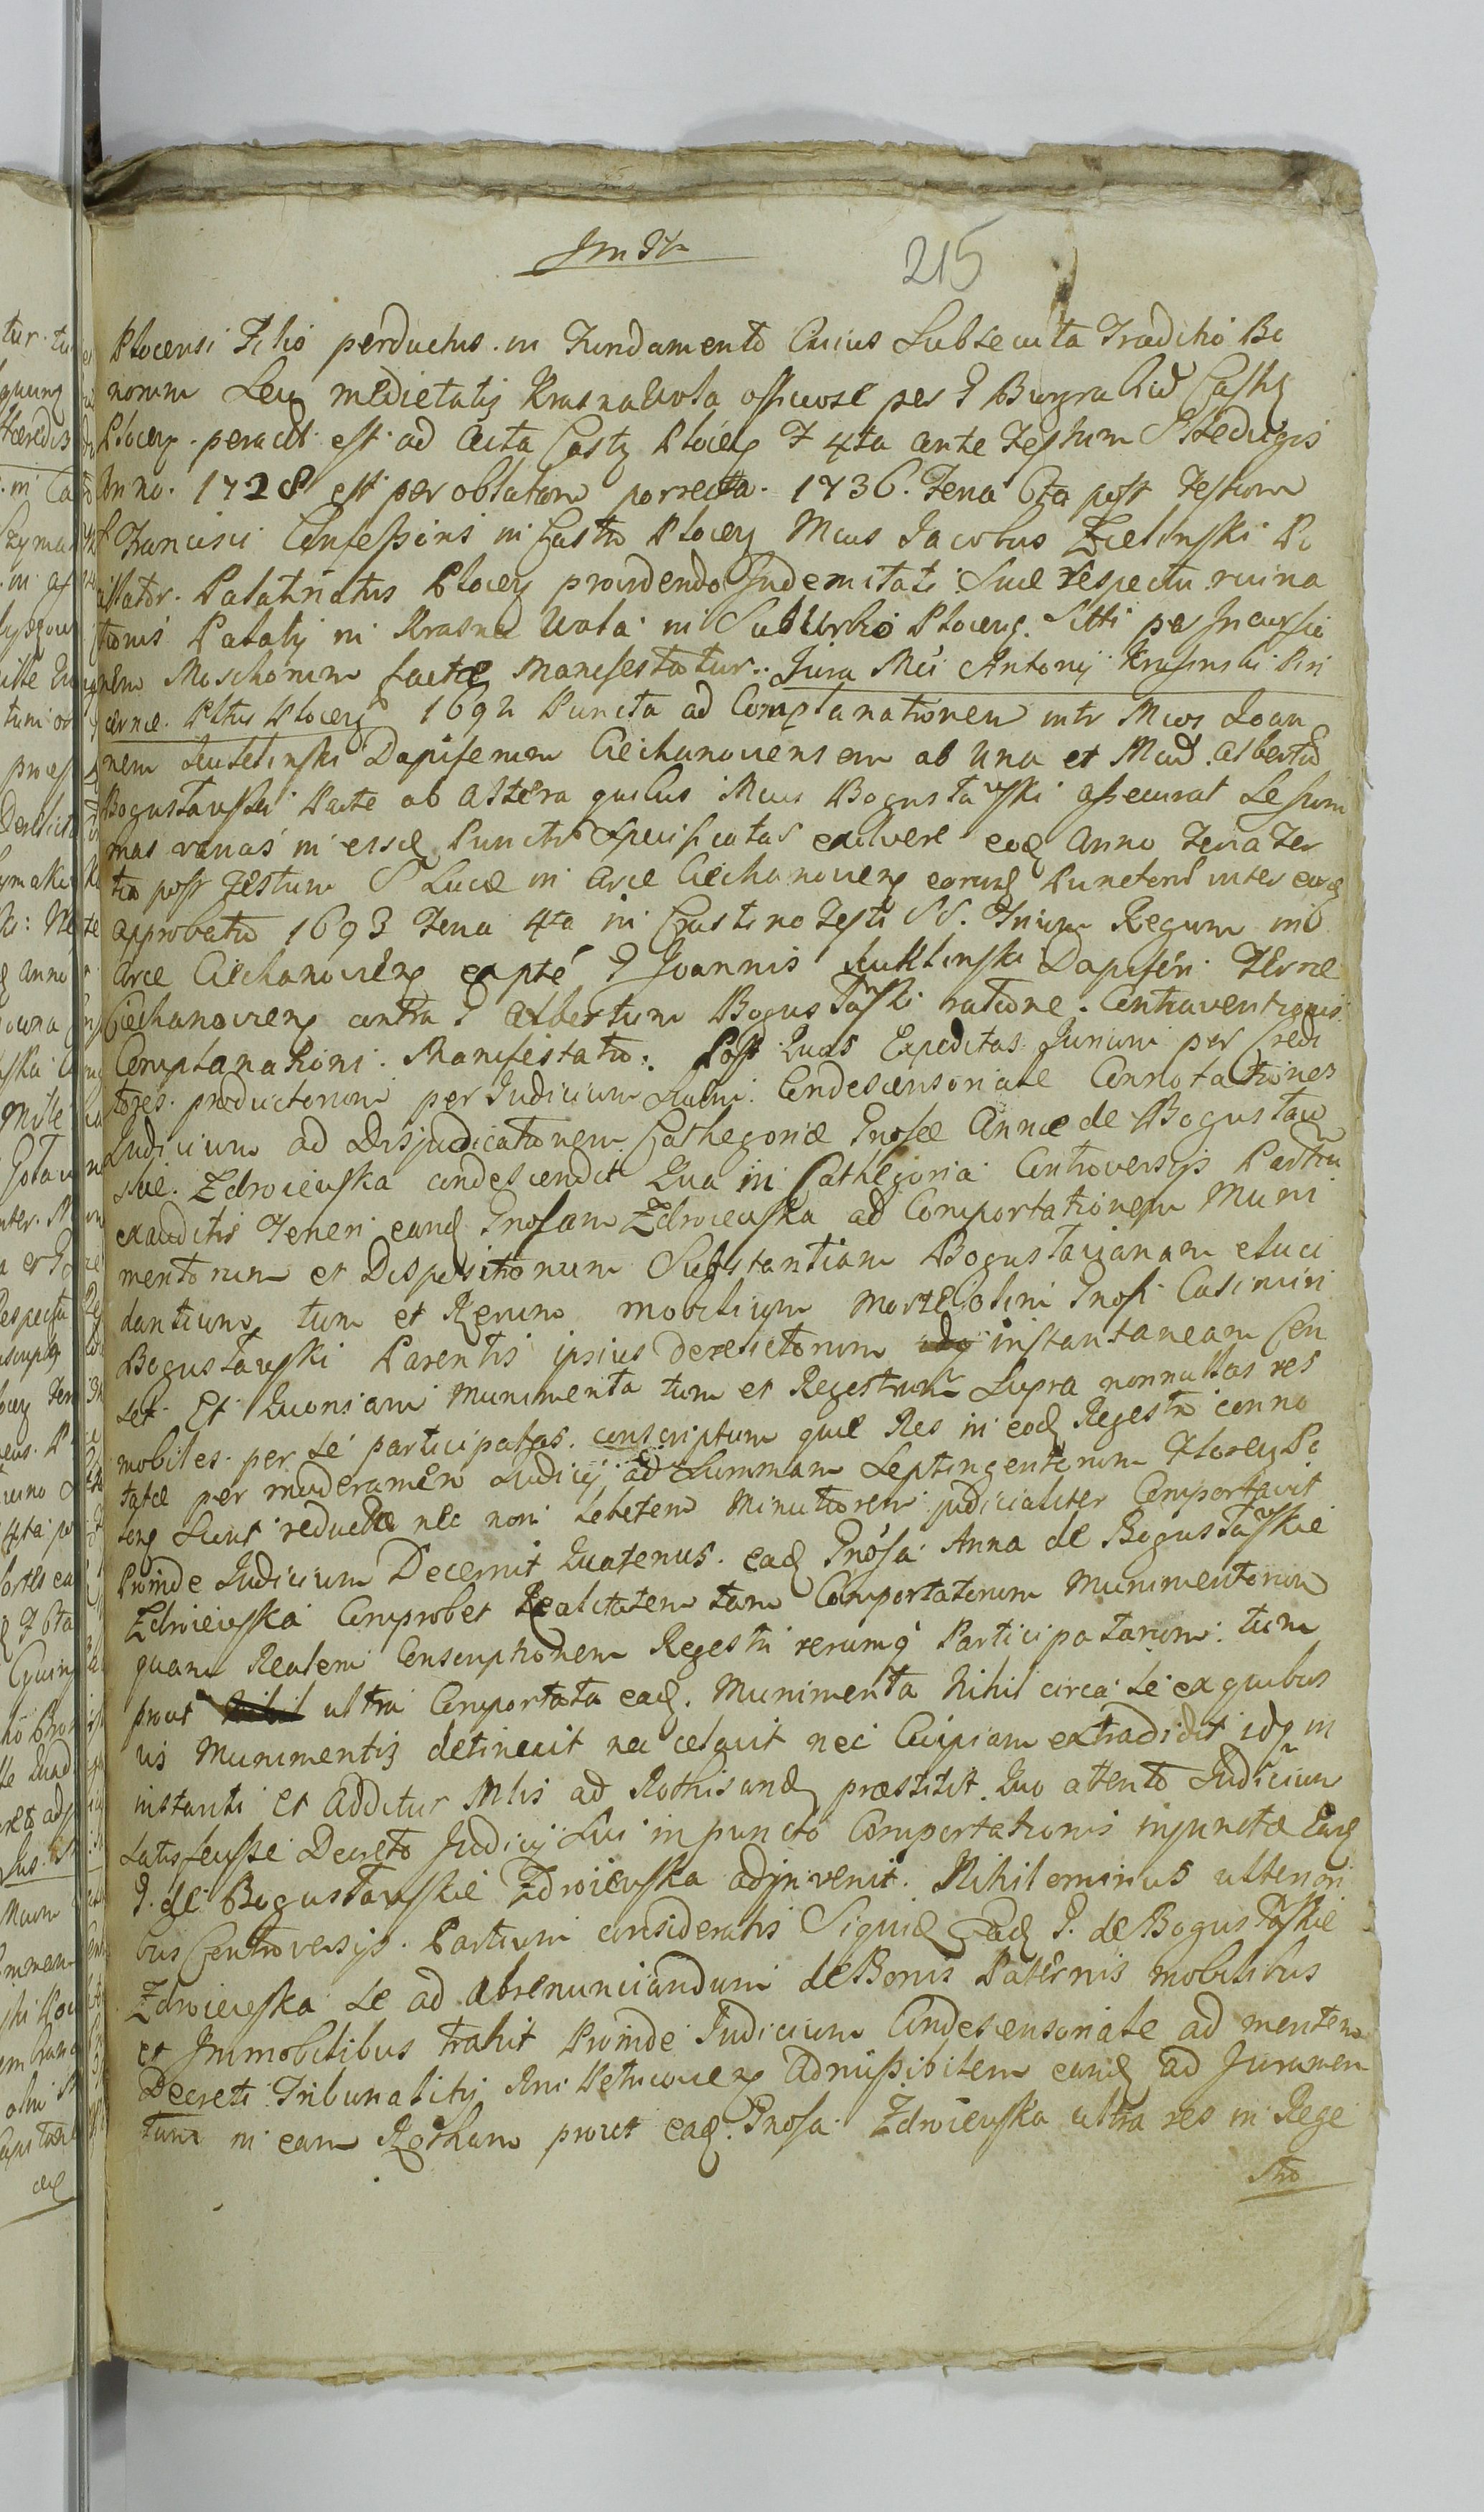 215
Plocensi Filio perductus. in Fundamento Cuius Subsecuta Traditio Bo
norum Seu medietatis Krasna Wola officiose per G Burgrabiu Castry
Plocen. peracta est ad Acta Castr Plocen F 4ta ante Festum S Hedvigis
Anno. 1728 est per oblatam porrecta. 1736. Feria 6ta post Festum
S Francisci Confessoris in Castro Plocen Mcus Jacobus Zielinski Po
cillator. Palatinatus Plocen providendo Indemnitati Suæ respectu ruina
tionis Palatij in Krasna Wola in SubUrbio Plocens. Sitti per Incursio
nem Moschorum factæ Manifestatur. Jura Mci Antonij Krasinski Pin
cernæ. Pltus Plocen 1692 Puncta ad Complanationem intr Mcos Joan
nem Dapiferum Ciechanoviensem ab una et Mcu Albertu
Bogustawski Parte ab altera quibus Mcus Bogustawski assecurat se sum
mas varias in eisde Punctis Specificatas exolvere eode Anno Feria Ter
tia post Festum S Lucæ in Arce Ciechanovien earund Punctoru inter eosd
approbatio 1693 Feria 4ta in Crastino Festi SS. Trium Regum in
Arce Ciechanovien ex pte G Joannis Dapiferi Terræ
Ciechanovien contra G Albertum Bogustawski ratione. Contraventionis
Complanationi. Manifestatio. Post Quas Expeditas Jurium per Credi
tores. productorum per Judicium Suum Condescensoriale Connotationes
Judicium ad Disjudicationem Cathegoriæ Gnosæ Annæ de Bogustaw
skie. Zdroiewska condescendit Qua in Cathegoria Controversijs Partiu
exauditis Teneri eand Gnosam Zdroiewska ad Comportationem Muni
mentorum et Dispositionum Substantiam Bogustavianam eluci
dantium, tum et Rerum mobilium Gnosi Casimiri
Bogustawski Parentis ipsius derelictorum instantaneam Cen
set Et Quoniam Munimenta tum et Regestrum Supra nonnullas res
mobiles. per se participatas. conscriptum quæ Res in eode Regestro conno
tatæ per moderamen Judicij, ad Summam Septingentorum Floreu Po
len Sunt reductæ nec non Lebetem Minutiorem judicialiter Comportavit
Proinde Judicium Decernit Quatenus. eade Gnosa Anna de Bogustawskie
Zdroiewska Comprobet Realitatem tam Comportatorum Munimentorum
quam Realem Conscriptionem Regestri rerumq Participatarum. tum
prout ultra Comportata eade. Munimenta Nihil circa se ex quibus
vis Munimentis detinuit nec celavit nec Cuipiam extradidit idq in
instanti et additur Mtis ad Rothisand præstitit. Quo attento Judicium
Satisfecisse Decreto Judicij Sui in puncto Comportationis injunctæ Eand
G. de Bogustawskie Zdroiewska adinvenit. Nihilominus ulteriori
bus Controversijs. Partium consideratis Siquid Ead G. de Bogustawskie
Zdroiewska se ad abrenunciandum de Bonis Paternis mobilibus
et Immobilibus trahit Proinde Judicium Condescensoriale ad mentem
Decreti Tribunalitij Rni Petricovien admissibilem eand ad Juramen
tum in eam Rotham prout ead. Gnosa Zdroiewska ultra res in Rege
stro